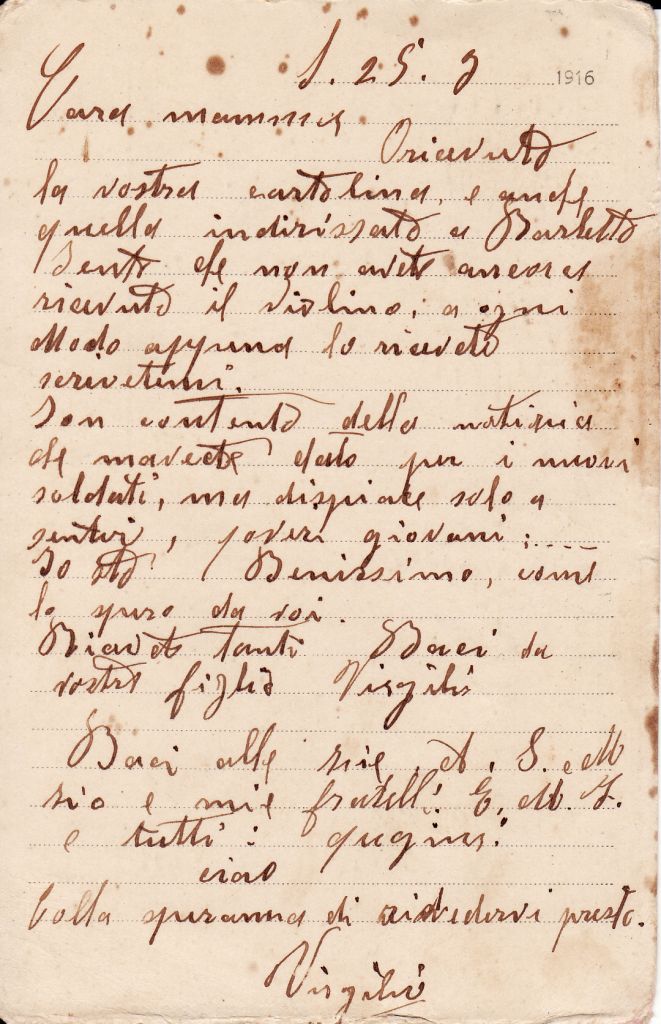 S. 25. 7 1916
Cara mamma
O ricevuto
la vostra cartolina, e anche
quella indirissata a Barletta
Sento che non avete ancora
ricevuto il violino, a ogni
Modo appena lo ricevete
scrivetemi.
Son contento della notisia
che mavete dato per i nuovi
soldati, ma dispiace solo a
sentire, poveri giovani;....
Io sto Benissimo, come
lo spero da voi.
Ricevete tanti Baci da
vostro figlio Virgilio
Baci alle sie A. S. e M
sio e mie fratelli E. M. F.
e tutti i qugini
ciao
Colla speranna di rivedervi presto.
Virgilio